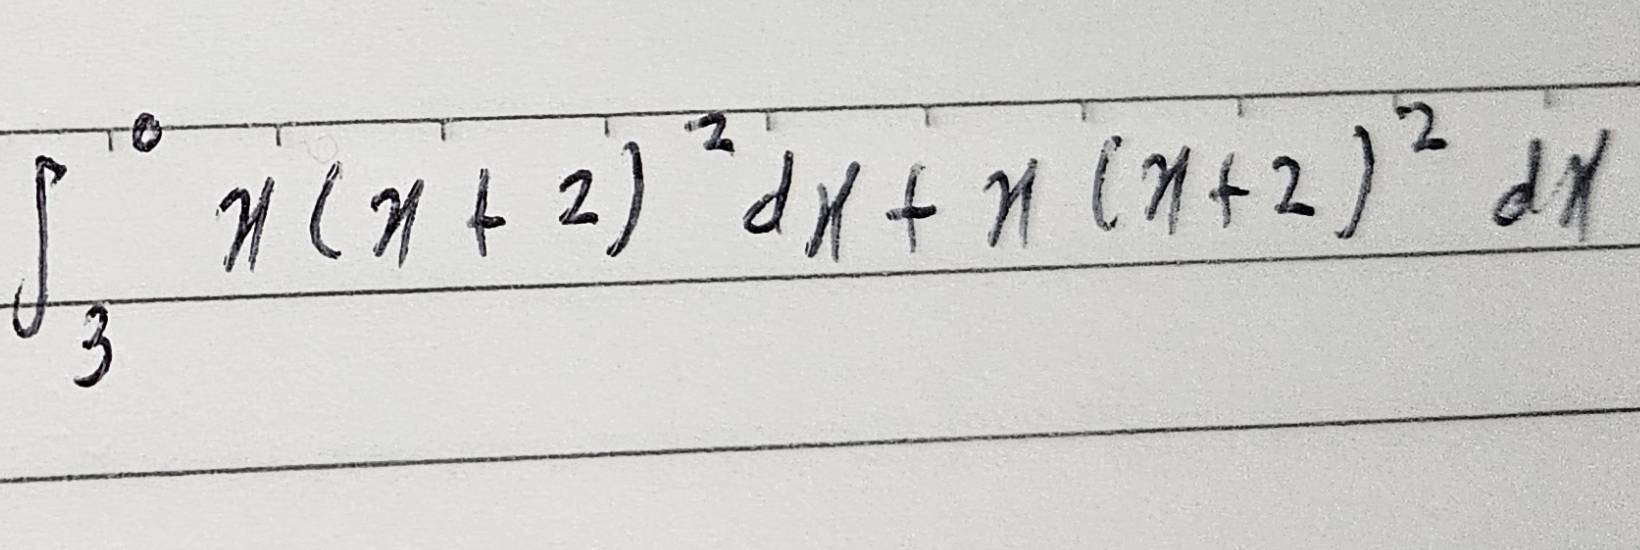 ∫₃⁰ x(x+2)² dx + x(x+2)² dx